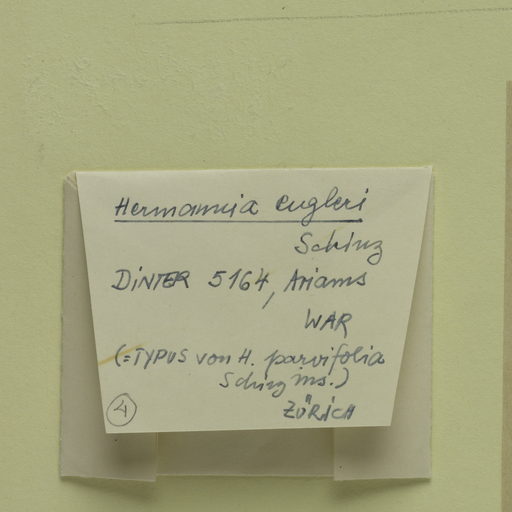 Hermannia engleri
Schinz
DINTER 5164, Ariams
WAR
(=TYPUS von H. parvifolia
Schinz ms.)
4 ZÜRICH